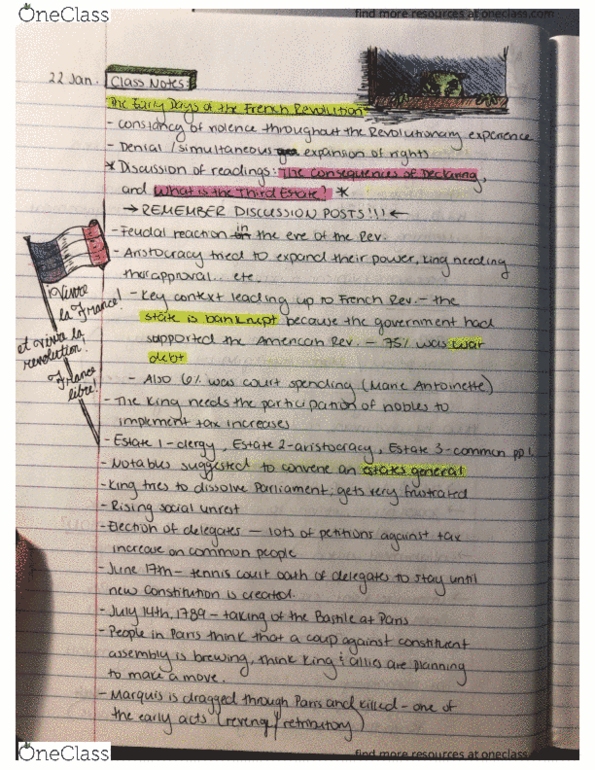 OneClass
find more resources at oneclass.com
22 Jan. Class Notes:
The Early Days of the French Revolution
- constancy of violence throughout the Revolutionary experience
- Denial / simultaneous expansion of rights
* Discussion of readings: The Consequences of Declaring,
and What is the Third Estate? *
→ REMEMBER DISCUSSION POSTS!!! ←
- Feudal reaction in the eve of the Rev.
- Aristocracy tried to expand their power, king needing
their approval... etc.
- Key context leading up to French Rev. - the
state is bankrupt because the government had
supported the American Rev. - 75% was war
debt
- Also 6% was court spending (Marie Antoinette)
- The King needs the participation of nobles to
implement tax increases
- Estate 1 - clergy, Estate 2 - aristocracy, Estate 3 - common ppl.
- Notables suggested to convene an estates general
- King tries to dissolve Parliament; gets very frustrated
- Rising social unrest
- Election of delegates - lots of petitions against tax
increase on common people
- June 17th - tennis court oath of delegates to stay until
new constitution is created.
- July 14th, 1789 - taking of the Bastile at Paris
- People in Paris think that a coup against constituent
assembly is brewing, think King & allies are planning
to make a move.
- Marquis is dragged through Paris and killed - one of
the early acts (revenge/retributory)
Vivte
la France!
et viva la
revolution!
France
libre!
OneClass
find more resources at oneclass.com